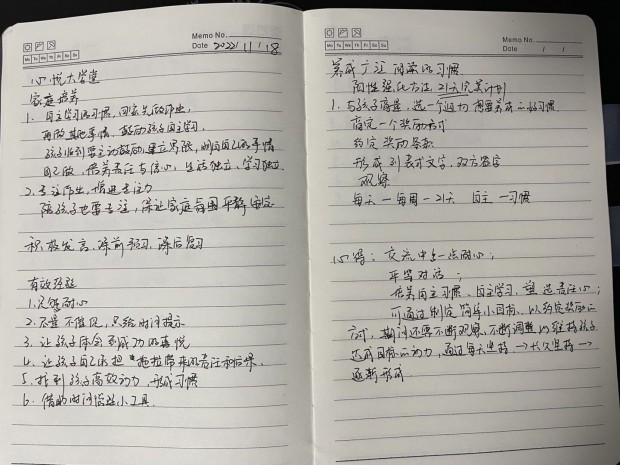 Memo No.
Mo Tu We Th Fr Sa Su
Date 2022/11/18
心悦大学堂
家庭培养
1. 自主学习的习惯,回家先做作业,
再做其他事情.鼓励孩子自主学习.
孩子做到要主动鼓励,建立界限,明确自己的事情
自己做,培养责任与信心,生活独立,学习独立.
2. 专注作业,增进专注力
陪孩子也要专注,保证家庭氛围平静安定
积极发言,课前预习,课后复习
有效
1. 足够耐心
2. 不催促,只给时间提示
3. 让孩子体会到成功的喜悦
4. 让孩子自己承担"拖拉带来的责任和后果.
5. 找到孩子高效动力,形成习惯
6. 借助时间管理小工具.
Memo No.
Mo Tu We Th Fr Sa Su
Date / /
养成专注阅读的习惯
阳性强化方法,21天完美计划
1. 与孩子商量,选一个迫切想要养成的好习惯.
商定一个奖励方式
约定奖励条款
形成列表或文字,双方签字
观察
每天—每周—21天 自主—习惯
心得:交流中多一点耐心;
平等对话;
培养自主习惯,自主学习,塑造责任心;
可通过制定简单小目标,以约定奖励的
方式,期间还要不断观察,不断调整以维持孩子
达成目标的动力,通过每天坚持→长久坚持→
逐渐形成.